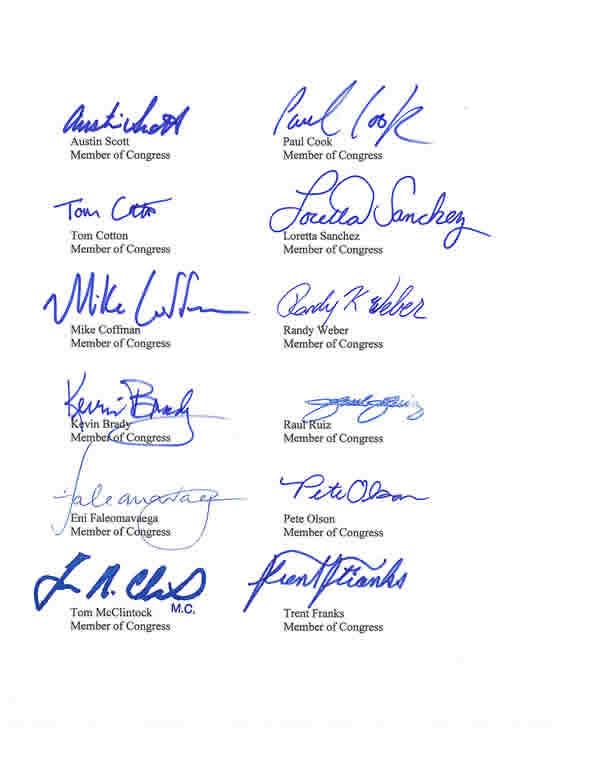 Austin Scott
Austin Scott
Member of Congress
Paul Cook
Paul Cook
Member of Congress
Tom Cotton
Tom Cotton
Member of Congress
Loretta Sanchez
Loretta Sanchez
Member of Congress
Mike Coffman
Mike Coffman
Member of Congress
Randy K Weber
Randy Weber
Member of Congress
Kevin Brady
Kevin Brady
Member of Congress
Raul Ruiz
Member of Congress
Faleomavaega
Eni Faleomavaega
Member of Congress
Pete Olson
Pete Olson
Member of Congress
M.C.
Tom McClintock
Member of Congress
Trent Franks
Trent Franks
Member of Congress